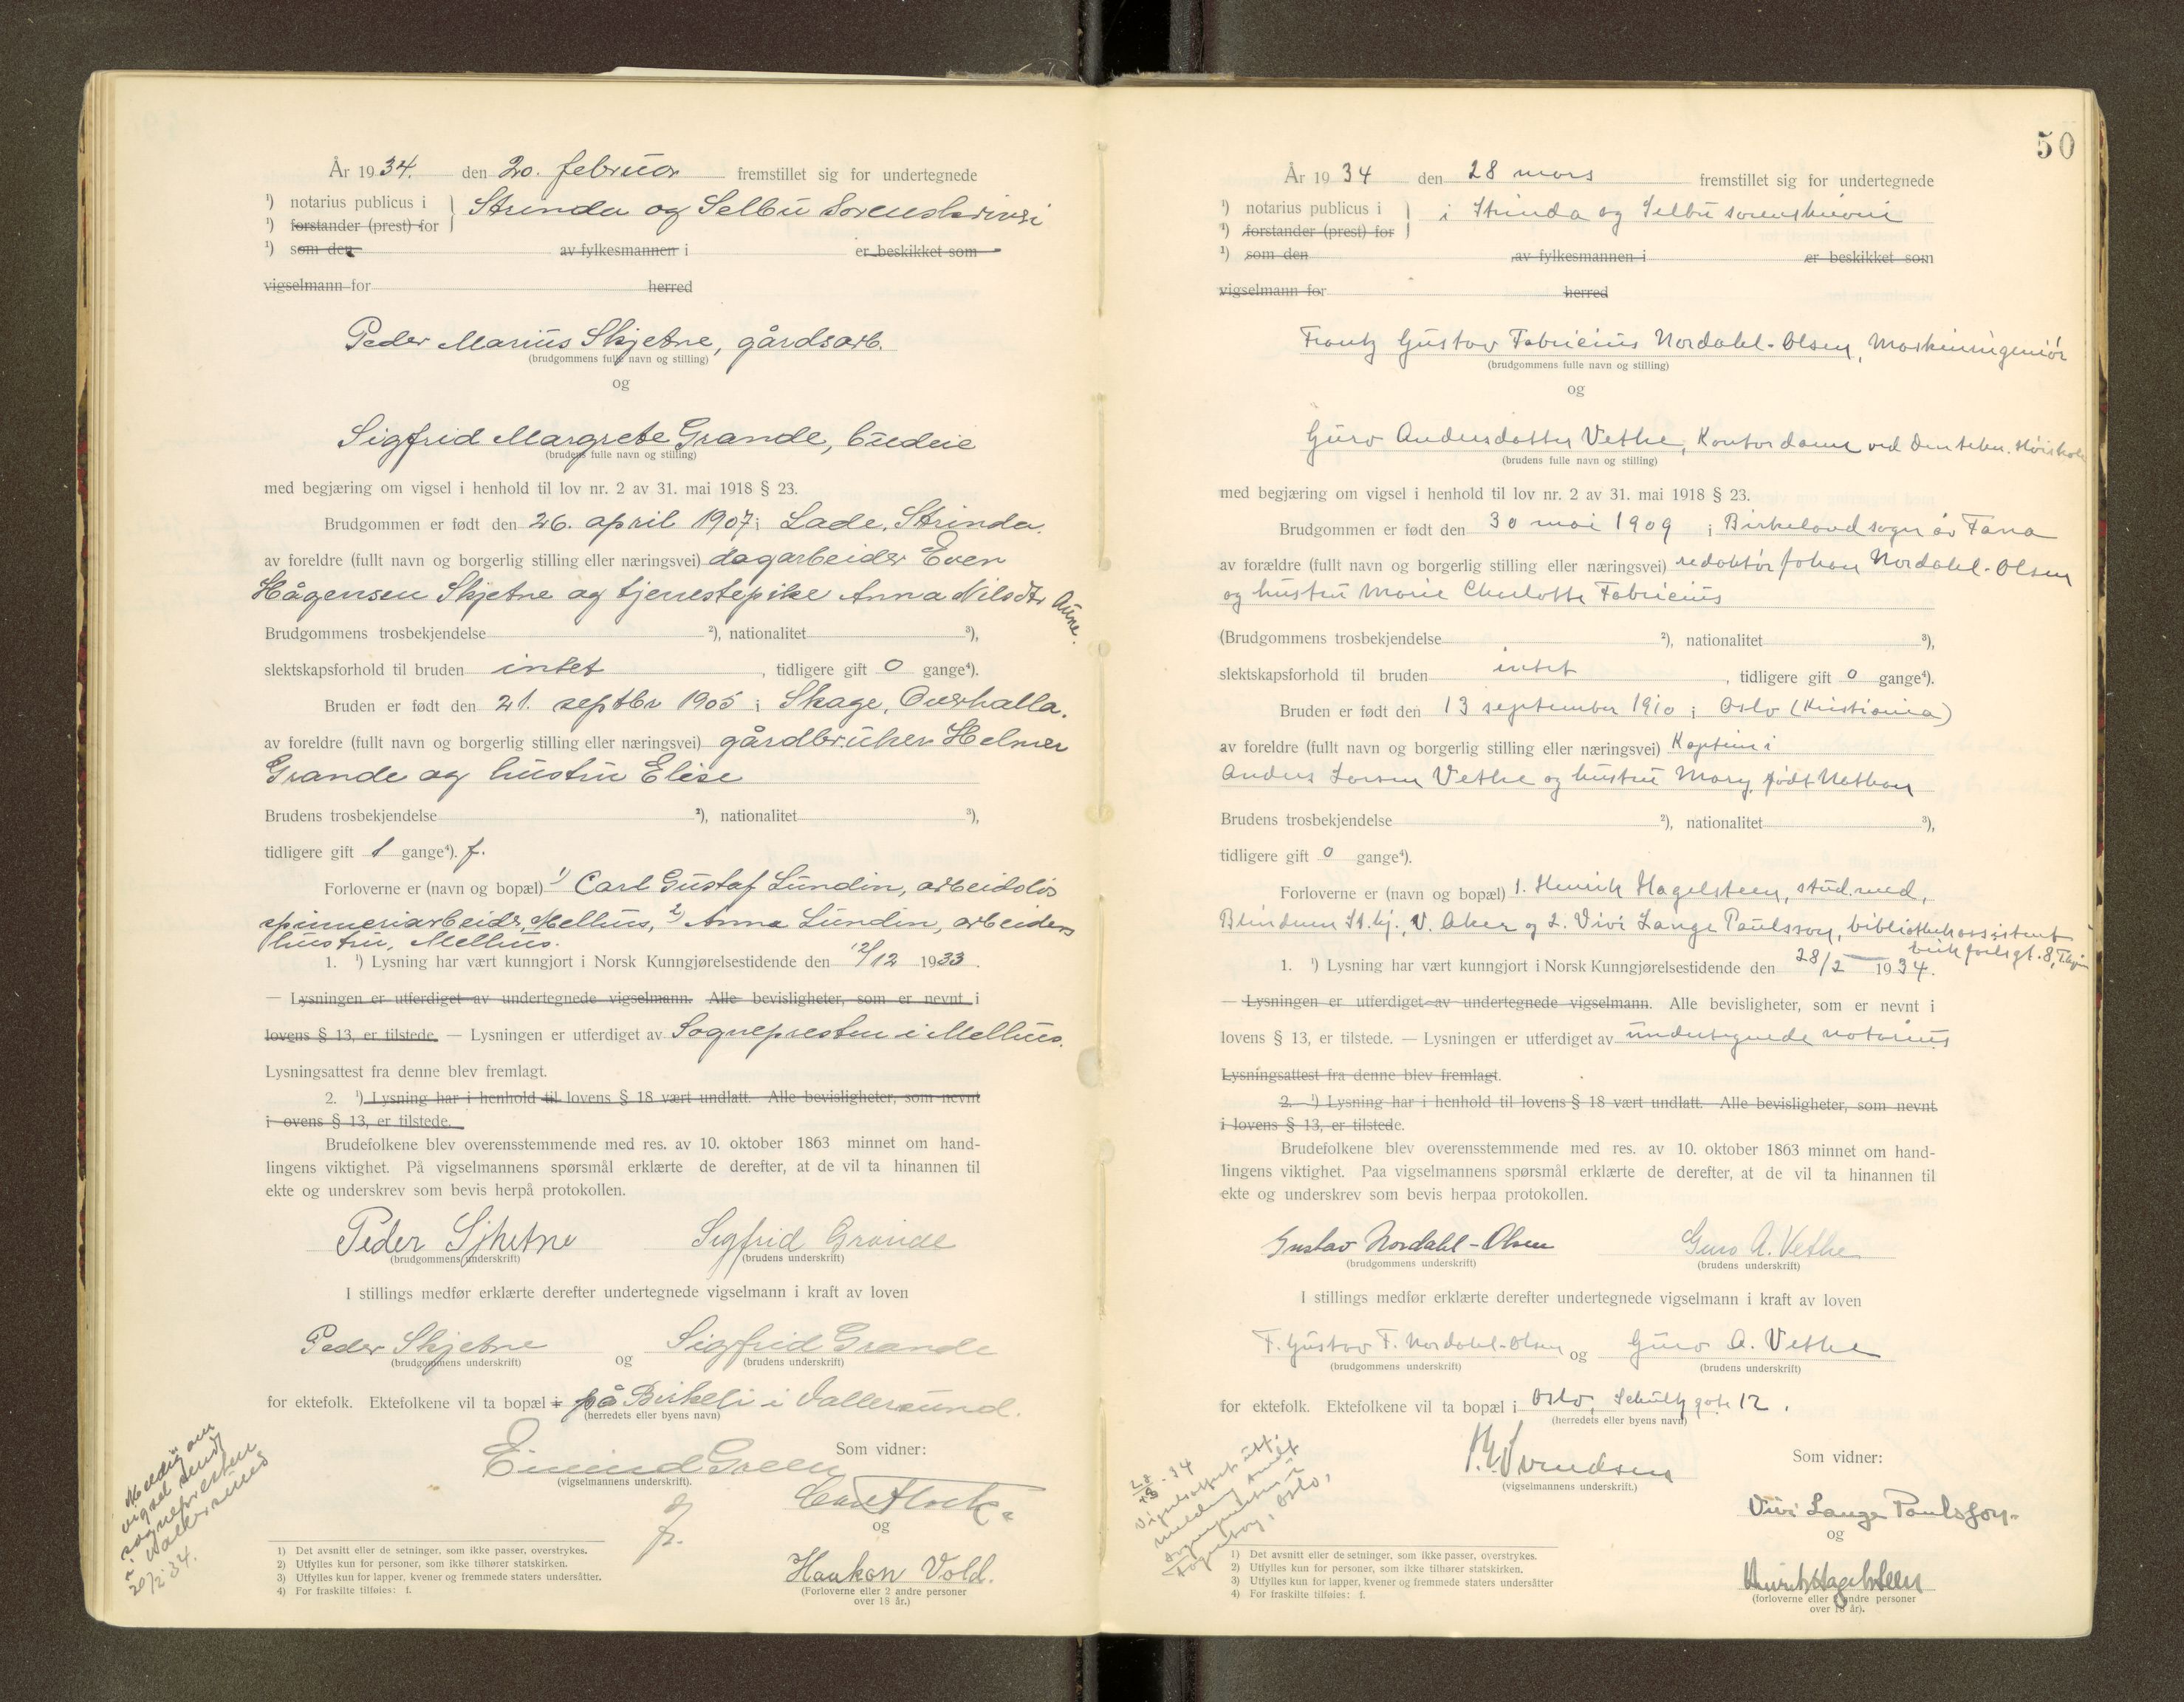 År 1934. den 20. februar fremstillet sig for undertegnede
¹) notarius publicus i Strinda og Selbu Sorenskriveri
¹) forstander (prest) for
¹) som den av fylkesmannen i er beskikket som
vigselmann for herred
Peder Marius Skjetne, gårdsarb.
(brudgommens fulle navn og stilling)
og
Sigfrid Margrete Grande, budeie
(brudens fulle navn og stilling)
med begjæring om vigsel i henhold til lov nr. 2 av 31. mai 1918 § 23.
Brudgommen er født den 26. april 1907 i Lade, Strinda.
av foreldre (fullt navn og borgerlig stilling eller næringsvei) dagarbeider Even
Hågensen Skjetne og tjenestepike Anna Nilsdtr Aune.
Brudgommens trosbekjendelse ²), nationalitet ³),
slektskapsforhold til bruden intet, tidligere gift 0 gange⁴).
Bruden er født den 21. septbr 1905 i Skage, Overhalla.
av foreldre (fullt navn og borgerlig stilling eller næringsvei) gårdbruker Helmer
Grande og hustru Elise
Brudens trosbekjendelse ²), nationalitet ³),
tidligere gift 1 gange⁴). f.
Forloverne er (navn og bopæl) 1) Carl Gustaf Lundin, arbeidsløs
spinneriarbeider, Melhus, 2) Anna Lundin, arbeiders
hustru, Melhus.
1. ¹) Lysning har vært kunngjort i Norsk Kunngjørelsestidende den 12/12 1933.
— Lysningen er utferdiget av undertegnede vigselmann. Alle bevisligheter, som er nevnt i
lovens § 13, er tilstede. — Lysningen er utferdiget av Sognepresten i Melhus.
Lysningsattest fra denne blev fremlagt.
2. ¹) Lysning har i henhold til lovens § 18 vært undlatt. Alle bevisligheter, som nevnt
i ovens § 13, er tilstede.
Brudefolkene blev overensstemmende med res. av 10. oktober 1863 minnet om hand-
lingens viktighet. På vigselmannens spørsmål erklærte de derefter, at de vil ta hinannen til
ekte og underskrev som bevis herpå protokollen.
Peder Sjketne Sigfrid Grande
(brudgommens underskrift) (brudens underskrift)
I stillings medfør erklærte derefter undertegnede vigselmann i kraft av loven
Peder Skjetne og Sigfrid Grande
(brudgommens underskrift) (brudens underskrift)
for ektefolk. Ektefolkene vil ta bopæl i på Birkeli i Vallersund.
(herredets eller byens navn)
Som vidner:
Eivind Green
(vigselmannens underskrift).
og
Haakon Vold.
(Forloverne eller 2 andre personer
over 18 år.)
Meldig om
vigsel sendt
sognepresten
i Vallersund
20/2 34.
1) Det avsnitt eller de setninger, som ikke passer, overstrykes.
2) Utfylles kun for personer, som ikke tilhører statskirken.
3) Utfylles kun for lapper, kvener og fremmede staters undersåtter.
4) For fraskilte tilføies: f.
50
År 1934 den 28 mars fremstillet sig for undertegnede
¹) notarius publicus i i Strinda og Selbu sorenskriveri
¹) forstander (prest) for
¹) som den av fylkesmannen i er beskikket som
vigselmann for herred
Frantz Gustav Fabricius Nordahl-Olsen, Maskiningeniør
(brudgommens fulle navn og stilling)
og
Guro Andersdatter Vethe, Kontordame ved den tekn. Høiskole
(brudens fulle navn og stilling)
med begjæring om vigsel i henhold til lov nr. 2 av 31. mai 1918 § 23.
Brudgommen er født den 30 mai 1909 i Birkeland sogn av Fana
av forældre (fullt navn og borgerlig stilling eller næringsvei) redaktør Johan Nordahl-Olsen
og hustru Marie Charlotte Fabricius
(Brudgommens trosbekjendelse ²), nationalitet ³),
slektskapsforhold til bruden intet, tidligere gift 0 gange⁴).
Bruden er født den 13 september 1910 i Oslo (Kristiania)
av foreldre (fullt navn og borgerlig stilling eller næringsvei) Kaptein i
Anders Larsen Vethe og hustru Mary, født Nathan
Brudens trosbekjendelse ²), nationalitet ³),
tidligere gift 0 gange⁴).
Forloverne er (navn og bopæl) 1. Henrik Hagelsteen, stud. med,
Blindern St.hj., V. Aker og 2. Vivi Lange Paulsson, bibliothekassistent
1. ¹) Lysning har vært kunngjort i Norsk Kunngjørelsestidende den 28/2 1934.
— Lysningen er utferdiget av undertegnede vigselmann. Alle bevisligheter, som er nevnt i
lovens § 13, er tilstede. — Lysningen er utferdiget av undertegnede notarius
Lysningsattest fra denne blev fremlagt.
2. ¹) Lysning har i henhold til lovens § 18 vært undlatt. Alle bevisligheter, som nevnt
i lovens § 13, er tilstede.
Brudefolkene blev overensstemmende med res. av 10. oktober 1863 minnet om hand-
lingens viktighet. Paa vigselmannens spørsmål erklærte de derefter, at de vil ta hinannen til
ekte og underskrev som bevis herpaa protokollen.
Gustav Nordahl-Olsen Guro A. Vethe
(brudgommens underskrift) (brudens underskrift)
I stillings medfør erklærte derefter undertegnede vigselmann i kraft av loven
F. Gustav F. Nordahl-Olsen og Guro A. Vethe
(brudgommens underskrift) (brudens underskrift)
for ektefolk. Ektefolkene vil ta bopæl i Oslo, Schultz gate 12.
(herredets eller byens navn)
Som vidner:
(vigselmannens underskrift.)
Vivi Lange Paulsson.
og
Henrik Hagelsteen
(forloverne eller 2 andre personer
over 18 år).
28/3-34
Vigselsattest utst.
melding sendt
sognepresten i
Fagerborg, Oslo.
1) Det avsnitt eller de setninger, som ikke passer, overstrykes.
2) Utfylles kun for personer, som ikke tilhører statskirken.
3) Utfylles kun for lapper, kvener og fremmede staters undersåtter
4) For fraskilte tilføies: f.